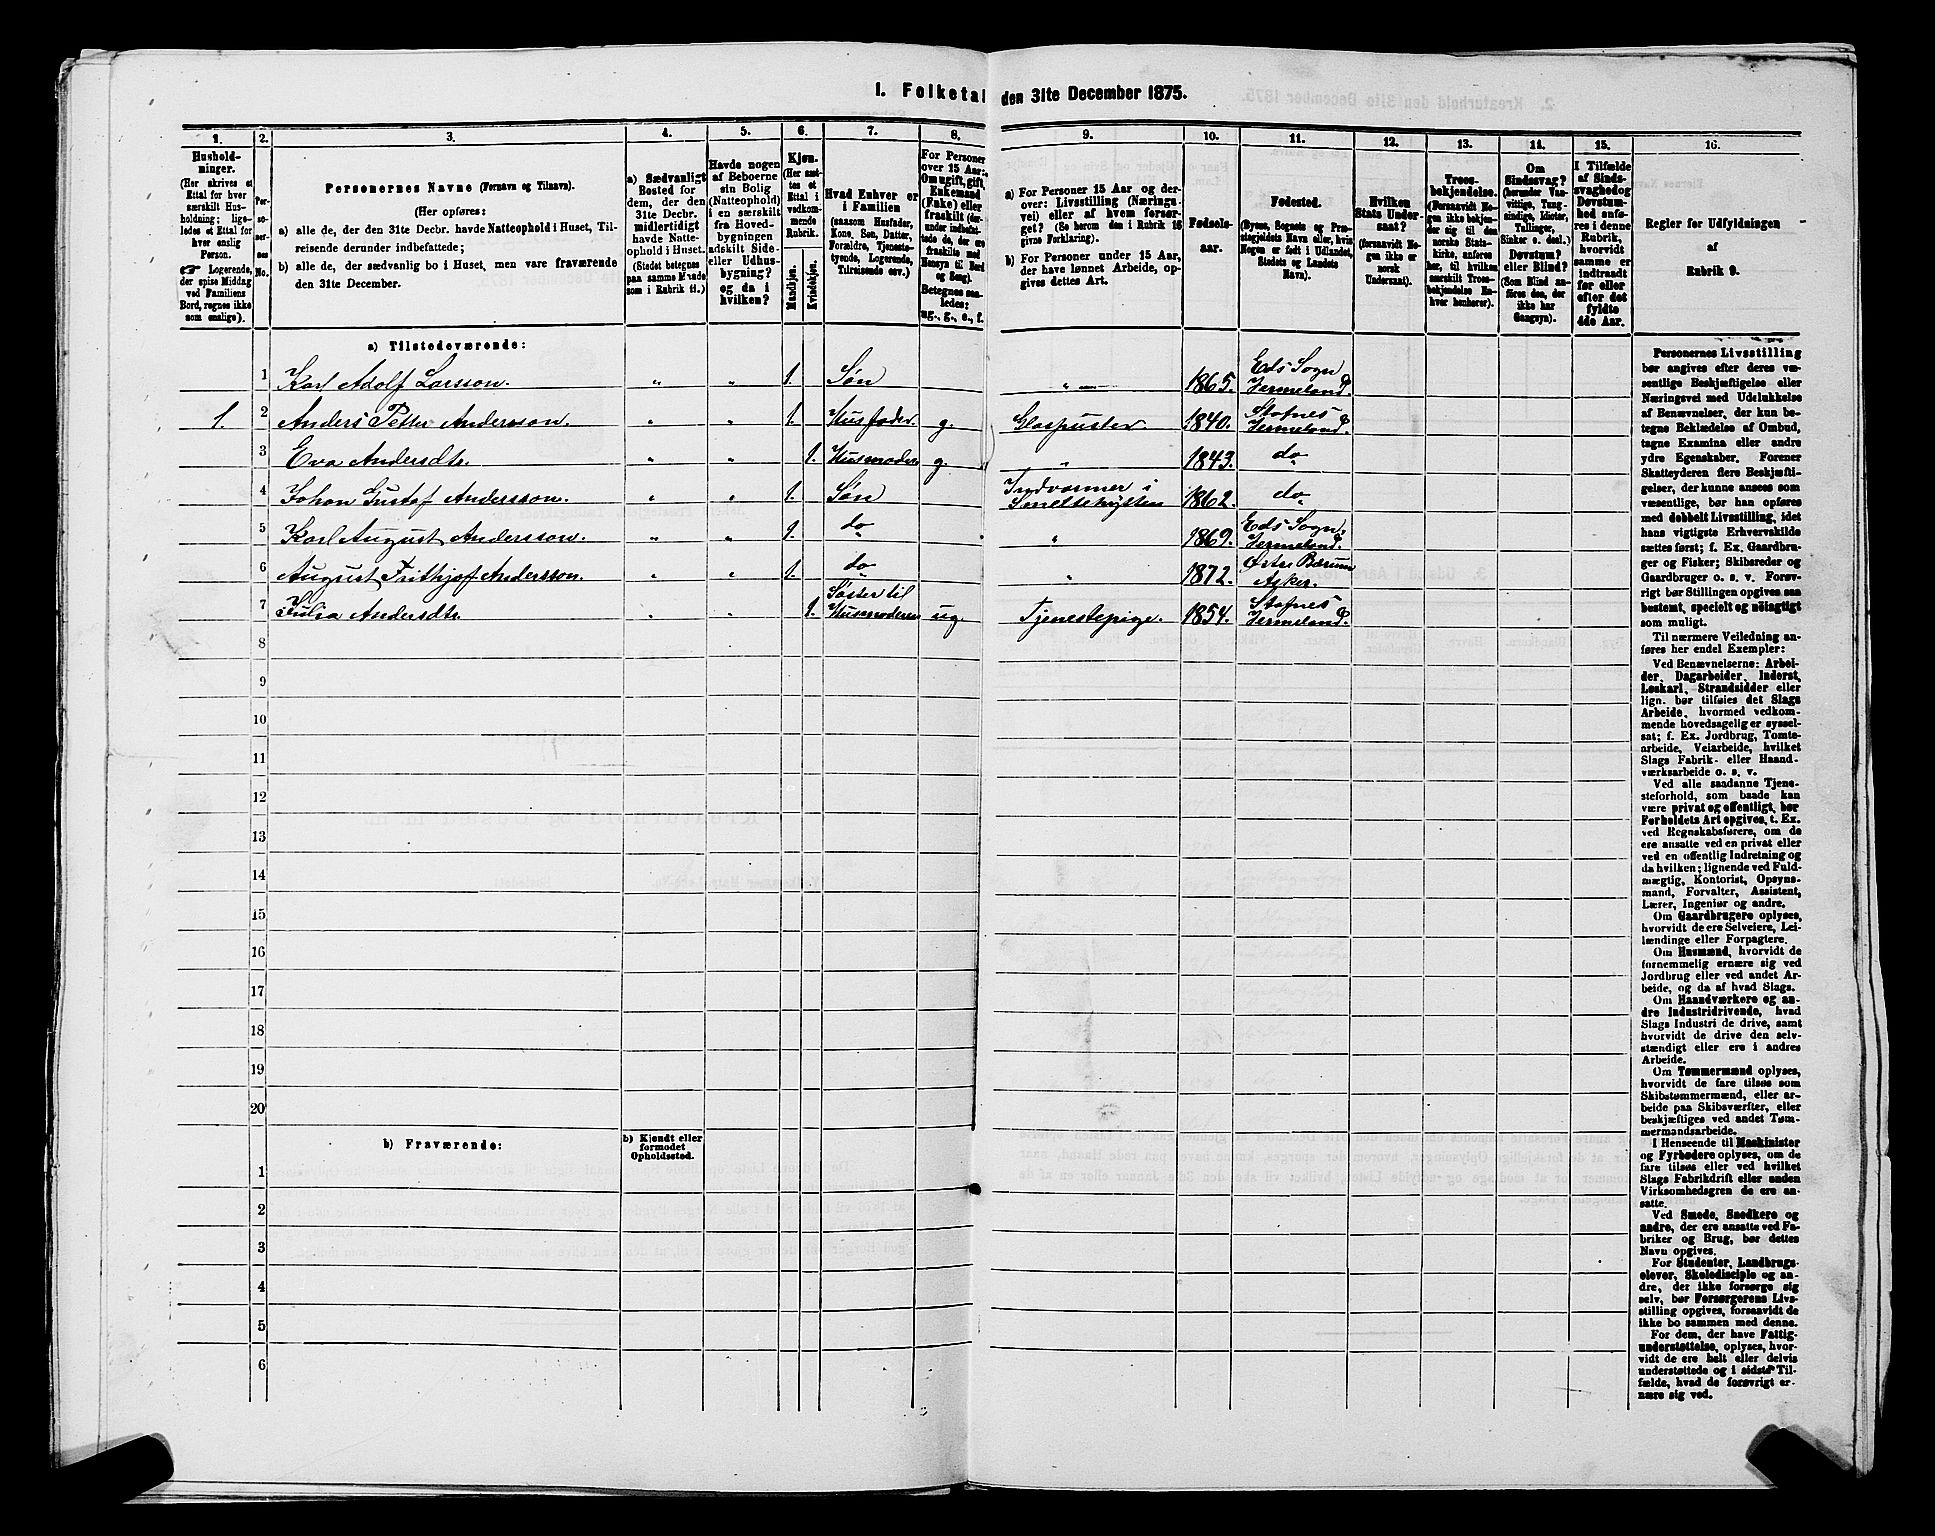 I. Folketal den 31te December 1875.
1.
2.
3.
4.
5.
6.
7.
8.
9.
10.
11.
12.
13.
14.
15.
16.
Hushold-
ninger.
(Her skrives et
Ettal for hver
særskilt Hus-
holdning; lige-
ledes et Ettal for
hver enslig
Person.
☞ Logerende,
der spise Middag
ved Familiens
Bord, regnes ikke
som enslige).
Per-
so-
ner-
nes
No.
Personernes Navne (Fornavn og Tilnavn).
(Her opføres:
a) alle de, der den 31te Decbr. havde Natteophold i Huset, Til-
reisende derunder indbefattede;
b) alle de, der sædvanlig bo i Huset, men vare fraværende
den 31te December.
a) Sædvanligt
Bosted for
dem, der den
31te Decbr.
midlertidigt
havde Natte-
ophold i Huset.
(Stedet betegnes
paa samme Maade
som i Rubrik 11.)
Havde nogen
af Beboerne
sin Bolig
(Natteophold)
i en særskilt
fra Hoved-
bygningen
adskilt Side-
eller Udhus-
bygning?
og da i
hvilken?
Kjøn.
(Her sæt-
tes et
Ettal i
vedkom-
mende
Rubrik.
Mandkjøn.
Kvindekjøn.
Hvad Enhver er
i Familien
(saasom Husfader,
Kone, Søn, Datter,
Forældre, Tjeneste-
tyende, Logerende,
Tilreisende osv.)
For Personer
over 15 Aar:
Om ugift, gift,
Enkemand
(Enke) eller
fraskilt (der-
under indbefat-
tede de, der ere
fraskilte med
Hensyn til Bord
og Seng).
Betegnes saa-
ledes:
ug., g., e., f.
a) For Personer 15 Aar og der-
over: Livsstilling (Nærings-
vei) eller af hvem forsør-
get? (Se herom den i Rubrik 16
givne Forklaring).
b) For Personer under 15 Aar,
der have lønnet Arbeide, op-
gives dettes Art.
Fødsels-
aar.
Fødested.
(Byens, Sognets og Præ-
stegjeldets Navn eller, hvis
Nogen er født i Udlandet,
Stedets og Landets
Navn).
Hvilken
Stats Under-
saat?
(forsaavidt No-
gen ikke er
norsk
Undersaat).
Troes-
bekjendelse.
(Forsaavidt No-
gen ikke bekjen-
der sig til den
norske Stats-
kirke, anføres
her, til hvilken
særskilt Troes-
bekjendelse En-
hver henhører).
Om
Sindssvag?
(herunder Van-
vittige, Tung-
sindige, Idioter,
Tullinger,
Sinker o. desl.)
Døvstum?
eller Blind?
(Som Blind an-
føres den, der
ikke har
Gangsyn).
I Tilfælde
af Sinds-
svaghed og
Døvstum-
hed anfø-
res i denne
Rubrik,
hvorvidt
samme er
indtraadt
før eller
efter det
fyldte
4de Aar.
Regler for Udfyldningen
af
Rubrik 9.
a) Tilstedeværende:
1 Karl Adolf Larsson. " " 1. Søn " 1865. Eds Sogn Vermeland.
1. 2 Anders Petter Andersson. " " 1. Husfader g. Glaspuster. 1840. Stafnes Vermeland.
3 Eva Andersdtr. " " 1. Husmoder g. " 1843. do
4 Johan Gustaf Andersson. " " 1. Søn Indvarmer i Smeltehytten 1862. do
5 Karl August Andersson. " " 1. do " 1869. Eds Sogn. Vermeland.
6 August Frithjof Andersson. " " 1. do " 1872. Østre Bærum Asker.
7 Julia Andersdtr. " " 1. Søster til Husmoderen ug. Tjenestepige. 1854. Stafnes Vermeland.
8
9
10
11
12
13
14
15
16
17
18
19
20
b) Fraværende:
b) Kjendt eller
formodet
Opholdssted.
1
2
3
4
5
6
Personernes Livsstilling
bør angives efter deres væ-
sentlige Beskjæftigelse eller
Næringsvei med Udelukkelse
af Benævnelser, der kun be-
tegne Beklædelse af Ombud,
tagne Examina eller andre
ydre Egenskaber. Forener
Skatteyderen flere Beskjæfti-
gelser, der kunne ansees som
væsentlige, bør han opføres
med dobbelt Livsstilling, idet
hans vigtigste Erhvervskilde
sættes først; f. Ex. Gaardbru-
ger og Fisker; Skibsreder og
Gaardbruger o. s. v. Forøv-
rigt bør Stillingen opgives saa
bestemt, specielt og nøiagtigt
som muligt.
Til nærmere Veiledning an-
føres her endel Exempler:
Ved Benævnelserne: Arbei-
der, Dagarbeider, Inderst,
Løskarl, Strandsidder eller
lign. bør tilføies det Slags
Arbeide, hvormed vedkom-
mende hovedsagelig er syssel-
sat; f. Ex. Jordbrug, Tomte-
arbeide, Veiarbeide, hvilket
Slags Fabrik- eller Haand-
værksarbeide o. s. v.
Ved alle saadanne Tjene-
steforhold, som baade kan
være privat og offentligt, bør
Forholdets Art opgives, t. Ex.
ved Regnskabsførere, om de
ere ansatte ved en privat eller
ved en offentlig Indretning og
da hvilken; lignende ved Fuld-
mægtig, Kontorist, Opsyns-
mand, Forvalter, Assistent,
Lærer, Ingeniør og andre.
Om Gaardbrugere oplyses,
hvorvidt de ere Selveiere, Lei-
lændinge eller Forpagtere.
Om Husmænd, hvorvidt de
fornemmelig ernære sig ved
Jordbrug eller ved andet Ar-
beide, og da af hvad Slags.
Om Haandværkere og an-
dre Industridrivende, hvad
Slags Industri de drive, samt
hvorvidt de drive den selv-
stændigt eller ere i andres
Arbeide.
Om Tømmermænd oplyses,
hvorvidt de fare tilsøs som
Skibstømmermænd, eller ar-
beide paa Skibsværfter, eller
beskjæftiges ved andet Tøm-
mermandsarbeide.
I Henseende til Maskinister
og Fyrbødere oplyses, om de
fare tilsøs eller ved hvilket
Slags Fabrikdrift eller anden
Virksomhedsgren de ere an-
satte.
Ved Smede, Snedkere og
andre, der ere ansatte ved Fa-
briker og Brug, bør dettes
Navn opgives.
For Studenter, Landbrugs-
elever, Skoledisciple og an-
dre, der ikke forsørge sig
selv, bør Forsørgerens Livs-
stilling opgives, forsaavidt de
ikke bo sammen med denne.
For dem, der have Fattig-
understøttelse, oplyses, hvor-
vidt de ere helt eller delvis
understøttede og i sidste Til-
fælde, hvad de forøvrigt er-
nære sig ved.